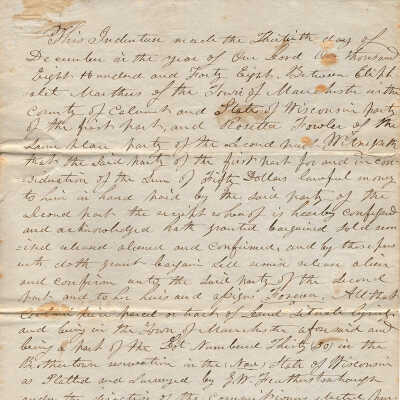 This Indenture made the Thirtieth day of
December in the year of Our Lord One thousand
Eight Hundred and Forty Eight. Between Eliph-
alit Marthers of the Town of Manchester in the
County of Calumet and State of Wisconsin party
of the first part, and Rosetta Fowler of the
Same place party of the Second part Witnesseth
that the Said party of the first part for and in con-
sideration of the Sum of Fifty Dollars lawful money
to him in hand paid by the Said party of the
Second part the receipt whereof is hereby confessed
and acknowledged hath granted bargained sold remi
sed released aliened and Confirmed, and by these pres
ents doth grant bargain Sell remise release alien
and confirm unto the Said party of the Second
part and to his heirs and assigns Forever. All that
Certain piece parcel or tract of Land situate lying
and being in the Town of Manchester aforesaid and
being a part of the Lot Numbered Thirty (30) in the
Brothertown reservation in the (Now) State of Wisconsin
as Platted and Surveyed by G. W. Featherstonhaugh
under the direction of the Commissioners elected